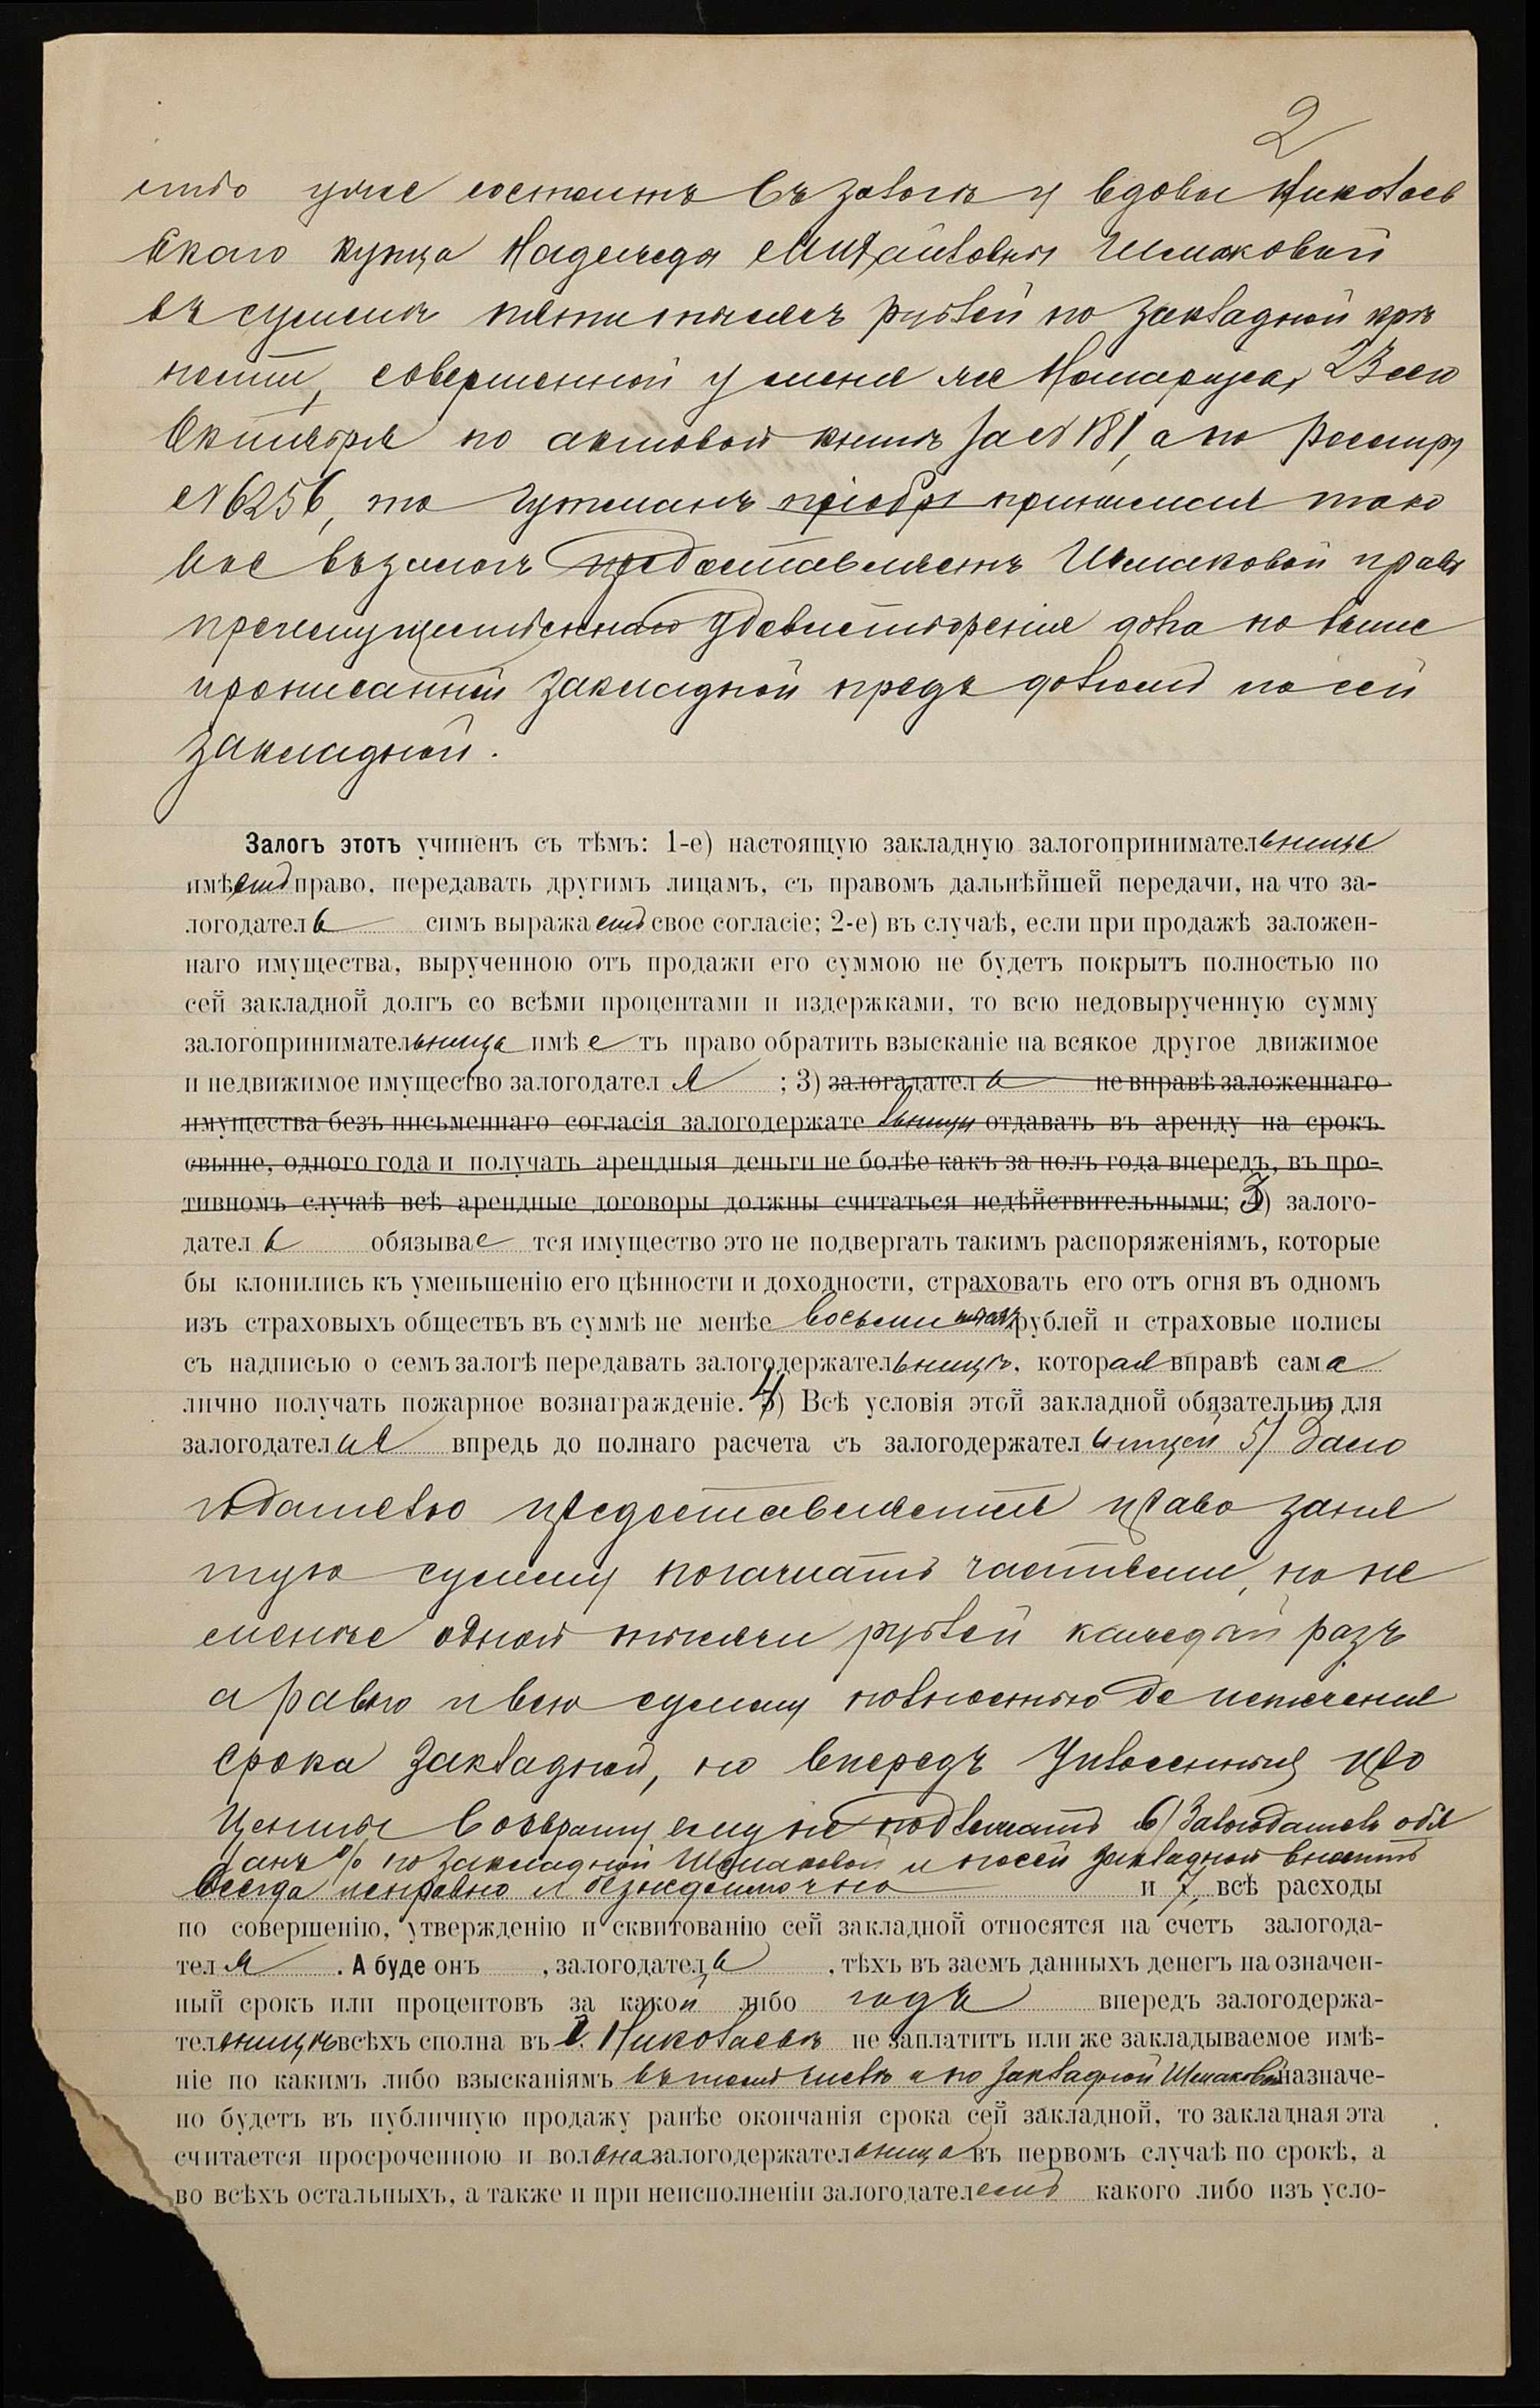 2
что уже состоитъ въ залогѣ у вдовы Николаев
скаго купца Надежды Михайловны Шмаковой
въ суммѣ пяти тысячъ рублей по закладной крѣ
пости, совершенной у меня же Нотаріуса, 23 сего
Октября по актовой книгѣ за № 181, а по реестру
№ 6256, то Гутманъ пріобр принимая тако
вое въ залогъ предоставляетъ Шмаковой право
преимущественнаго удовлетворенія долга по выше
прописанной закладной предъ долгомъ по сей
закладной.
Залогъ этотъ учиненъ съ тѣмъ: 1-е) настоящую закладную залогопринимательница
имѣетъ право, передавать другимъ лицамъ, съ правомъ дальнѣйшей передачи, на что за-
логодатель симъ выражаетъ свое согласіе; 2-е) въ случаѣ, если при продажѣ заложен-
наго имущества, вырученною отъ продажи его суммою не будетъ покрытъ полностью по
сей закладной долгъ со всѣми процентами и издержками, то всю недовырученную сумму
залогопринимательница имѣетъ право обратить взысканіе на всякое другое движимое
и недвижимое имущество залогодателя ; 3) залогадатель не вправѣ заложеннаго
имущества безъ письменнаго согласія залогодержательницы отдавать въ аренду на срокъ
свыше, одного года и получать арендныя деньги не болѣе какъ за полъ года впередъ, въ про-
тивномъ случаѣ всѣ арендные договоры должны считаться недѣйствительными; 3) залого-
датель обязывается имущество это не подвергать такимъ распоряженіямъ, которые
бы клонились къ уменьшенію его цѣнности и доходности, страховать его отъ огня въ одномъ
изъ страховыхъ обществъ въ суммѣ не менѣе восьми тысячъ рублей и страховые полисы
съ надписью о семъ залогѣ передавать залогодержательницѣ, которая вправѣ сама
лично получать пожарное вознагражденіе. 4) Всѣ условія этой закладной обязательны для
залогодателя впредь до полнаго расчета съ залогодержательницей 5) Зало
годателю предоставляется право заня
тую сумму погашать частями, но не
менѣе одной тысячи рублей каждый разъ
а равно и всю сумму полностью до истеченія
срока закладной, но впередъ уплоченные про
центы возврату ему не подлежатъ 6) Залогодатель обя
занъ % по закладной Шмаковой и по сей закладной вносить
всегда исправно и безнедоимочно и 7, всѣ расходы
по совершенію, утвержденію и сквитованію сей закладной относятся на счетъ залогода-
теля . А буде онъ , залогодатель , тѣхъ въ заемъ данныхъ денегъ на означен-
ный срокъ или процентовъ за какой либо годъ впередъ залогодержа-
тельницѣ всѣхъ сполна въ г. Николаевѣ не заплатитъ или же закладываемое имѣ-
ніе по какимъ либо взысканіямъ въ томъ числѣ и по закладной Шмаковой назначе-
но будетъ въ публичную продажу ранѣе окончанія срока сей закладной, то закладная эта
считается просроченною и вольна залогодержательница въ первомъ случаѣ по срокѣ, а
во всѣхъ остальныхъ, а также и при неисполненіи залогодателемъ какого либо изъ усло-